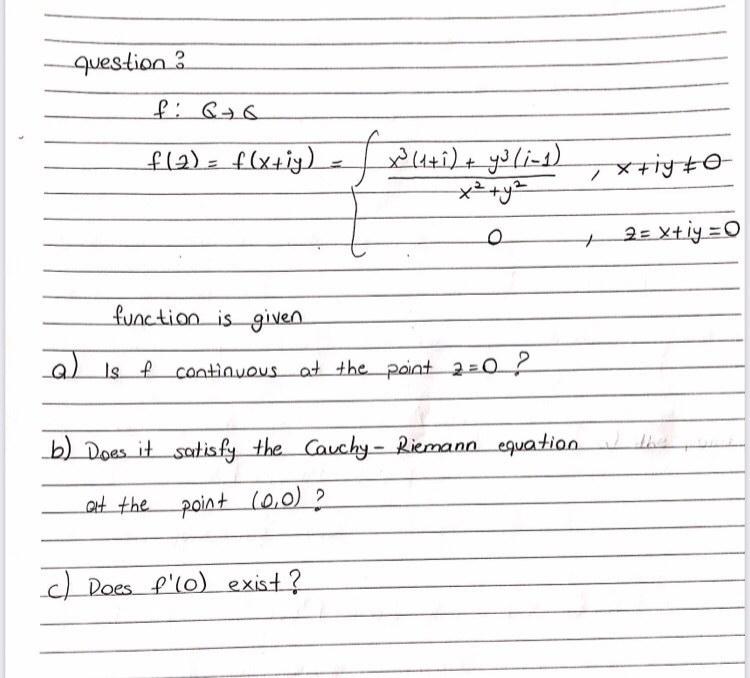 question 3
f: C→C
f(z) = f(x+iy) = { x³(1+i) + y³(i-1) / x²+y² , x+iy ≠ 0
0 , z = x+iy = 0
function is given
a) Is f continuous at the point z=0 ?
b) Does it satisfy the Cauchy-Riemann equation
at the point (0,0) ?
c) Does f'(0) exist?